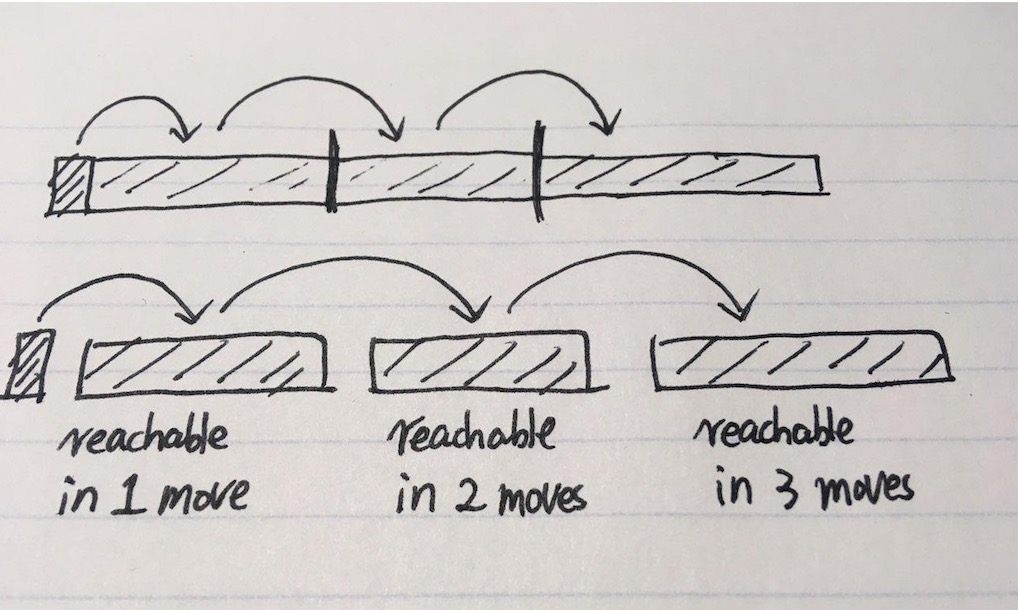 reachable
in 1 move
reachable
in 2 moves
reachable
in 3 moves